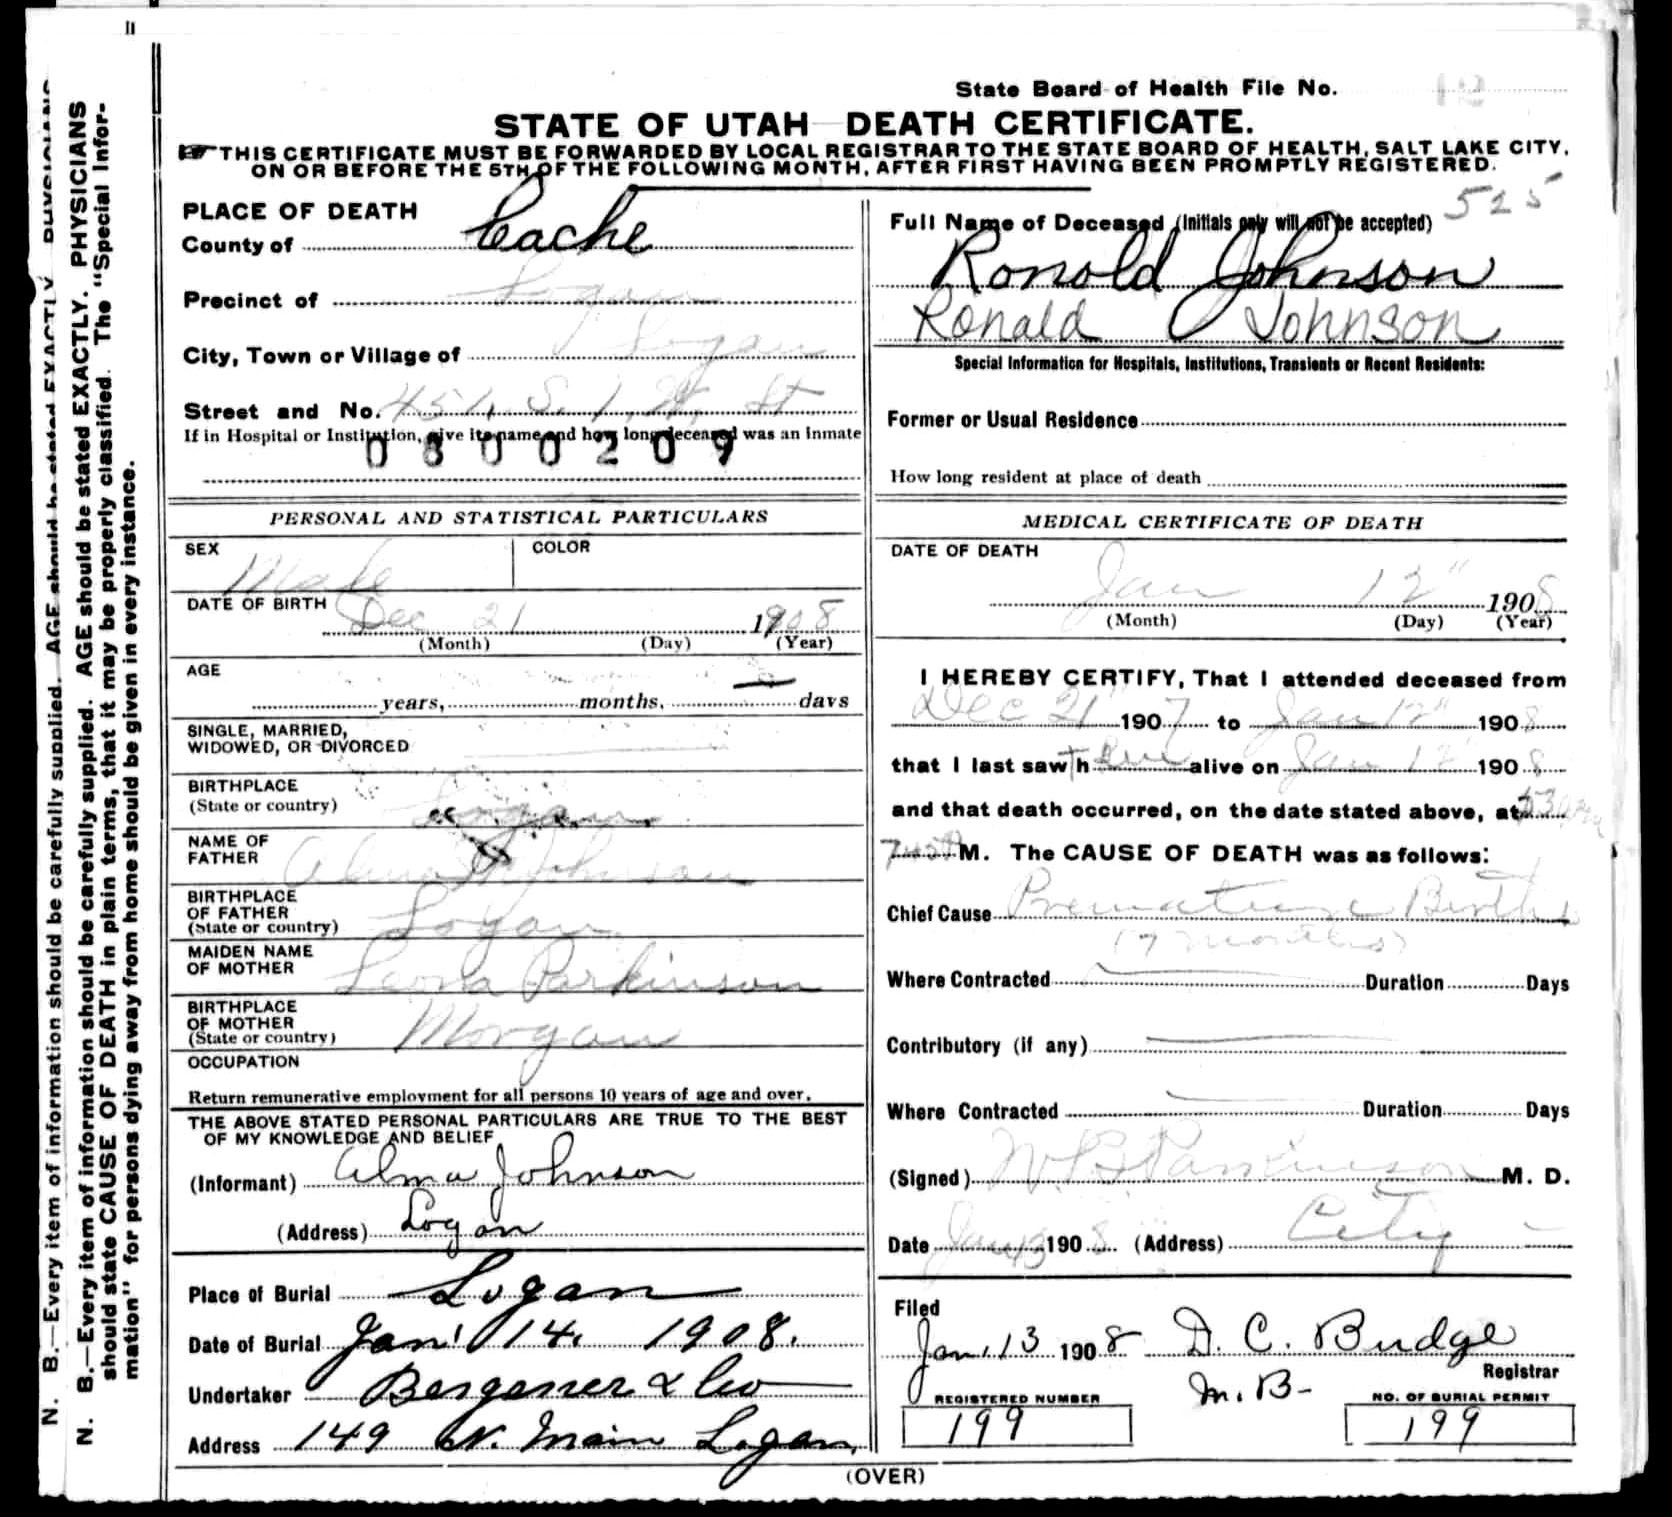 State Board of Health File No.
STATE OF UTAH DEATH CERTIFICATE.
THIS CERTIFICATE MUST BE FORWARDED BY LOCAL REGISTRAR TO THE STATE BOARD OF HEALTH, SALT LAKE CITY,
ON OR BEFORE THE 5TH OF THE FOLLOWING MONTH, AFTER FIRST HAVING BEEN PROMPTLY REGISTERED.
N. B.—Every item of information should be carefully supplied. AGE should be stated EXACTLY. PHYSICIANS
N. B.—Every item of information should be carefully supplied. AGE should be stated EXACTLY. PHYSICIANS
should state CAUSE OF DEATH in plain terms, that it may be properly classified. The "Special Infor-
mation" for persons dying away from home should be given in every instance.
PLACE OF DEATH
County of Cache
Precinct of Logan
City, Town or Village of Logan
Street and No. S. 1 W. St
If in Hospital or Institution, give its name and how long deceased was an inmate
0800209
PERSONAL AND STATISTICAL PARTICULARS
SEX Male COLOR
DATE OF BIRTH Dec 21 1908
(Month) (Day) (Year)
AGE
years, months, days
SINGLE, MARRIED,
WIDOWED, OR DIVORCED
BIRTHPLACE
(State or country) Logan
NAME OF
FATHER Alma Johnson
BIRTHPLACE
OF FATHER
(State or country) Logan
MAIDEN NAME
OF MOTHER Leona Parkinson
BIRTHPLACE
OF MOTHER
(State or country) Morgan
OCCUPATION
Return remunerative employment for all persons 10 years of age and over.
THE ABOVE STATED PERSONAL PARTICULARS ARE TRUE TO THE BEST
OF MY KNOWLEDGE AND BELIEF
(Informant) Alma Johnson
(Address) Logan
Place of Burial Logan
Date of Burial Jan. 14. 1908.
Undertaker & Co
Address 149 N. Main Logan,
525
Full Name of Deceased (Initials only will not be accepted)
Ronold Johnson
Ronald Johnson
Special Information for Hospitals, Institutions, Transients or Recent Residents:
Former or Usual Residence
How long resident at place of death
MEDICAL CERTIFICATE OF DEATH
DATE OF DEATH
Jan 12" 1908
(Month) (Day) (Year)
I HEREBY CERTIFY, That I attended deceased from
Dec 21" 1907 to Jan 12" 1908
that I last saw h alive on Jan 12" 1908
and that death occurred, on the date stated above, at
M. The CAUSE OF DEATH was as follows:
Chief Cause Premature Birth
(7 months)
Where Contracted Duration Days
Contributory (if any)
Where Contracted Duration Days
(Signed) W. B. Parkinson M. D.
Date Jan 13 1908 (Address) City
Filed
Jan. 13 1908 D. C. Budge
Registrar
M. B-
REGISTERED NUMBER
199
NO. OF BURIAL PERMIT
199
(OVER)